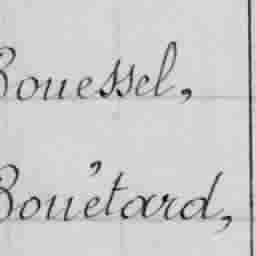 Rouessel,
Rouétard,